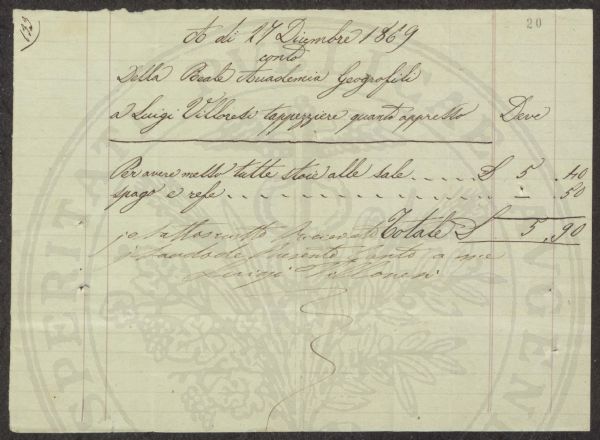 (123)
20
A di 17 Dicembre 1869
conto
Della Reale Accademia Geografili
a Luigi Villoresi tappezziere quanto appresso Deve
Per avere messo tutte stoie alle sale..... £ 5 .40
spago e refe.......... – .50
Totale £ 5.90
io sottoscritto
presente conto a me
Luigi Villoresi
PROSPERITATI AUGENDAE